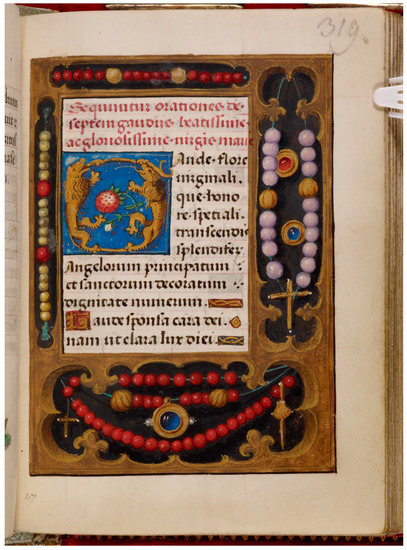 319.
Sequuntur orationes de
septem gaudijs beatissime
ac gloriosissime virgis marie
Gaude flore
virginali.
que hono
re spetiali
transcendis
splendifer
Angelorum principatum
et sanctorum decoratum
dignitate numerum.
Gaude sponsa cara dei
nam ut clara lux diei